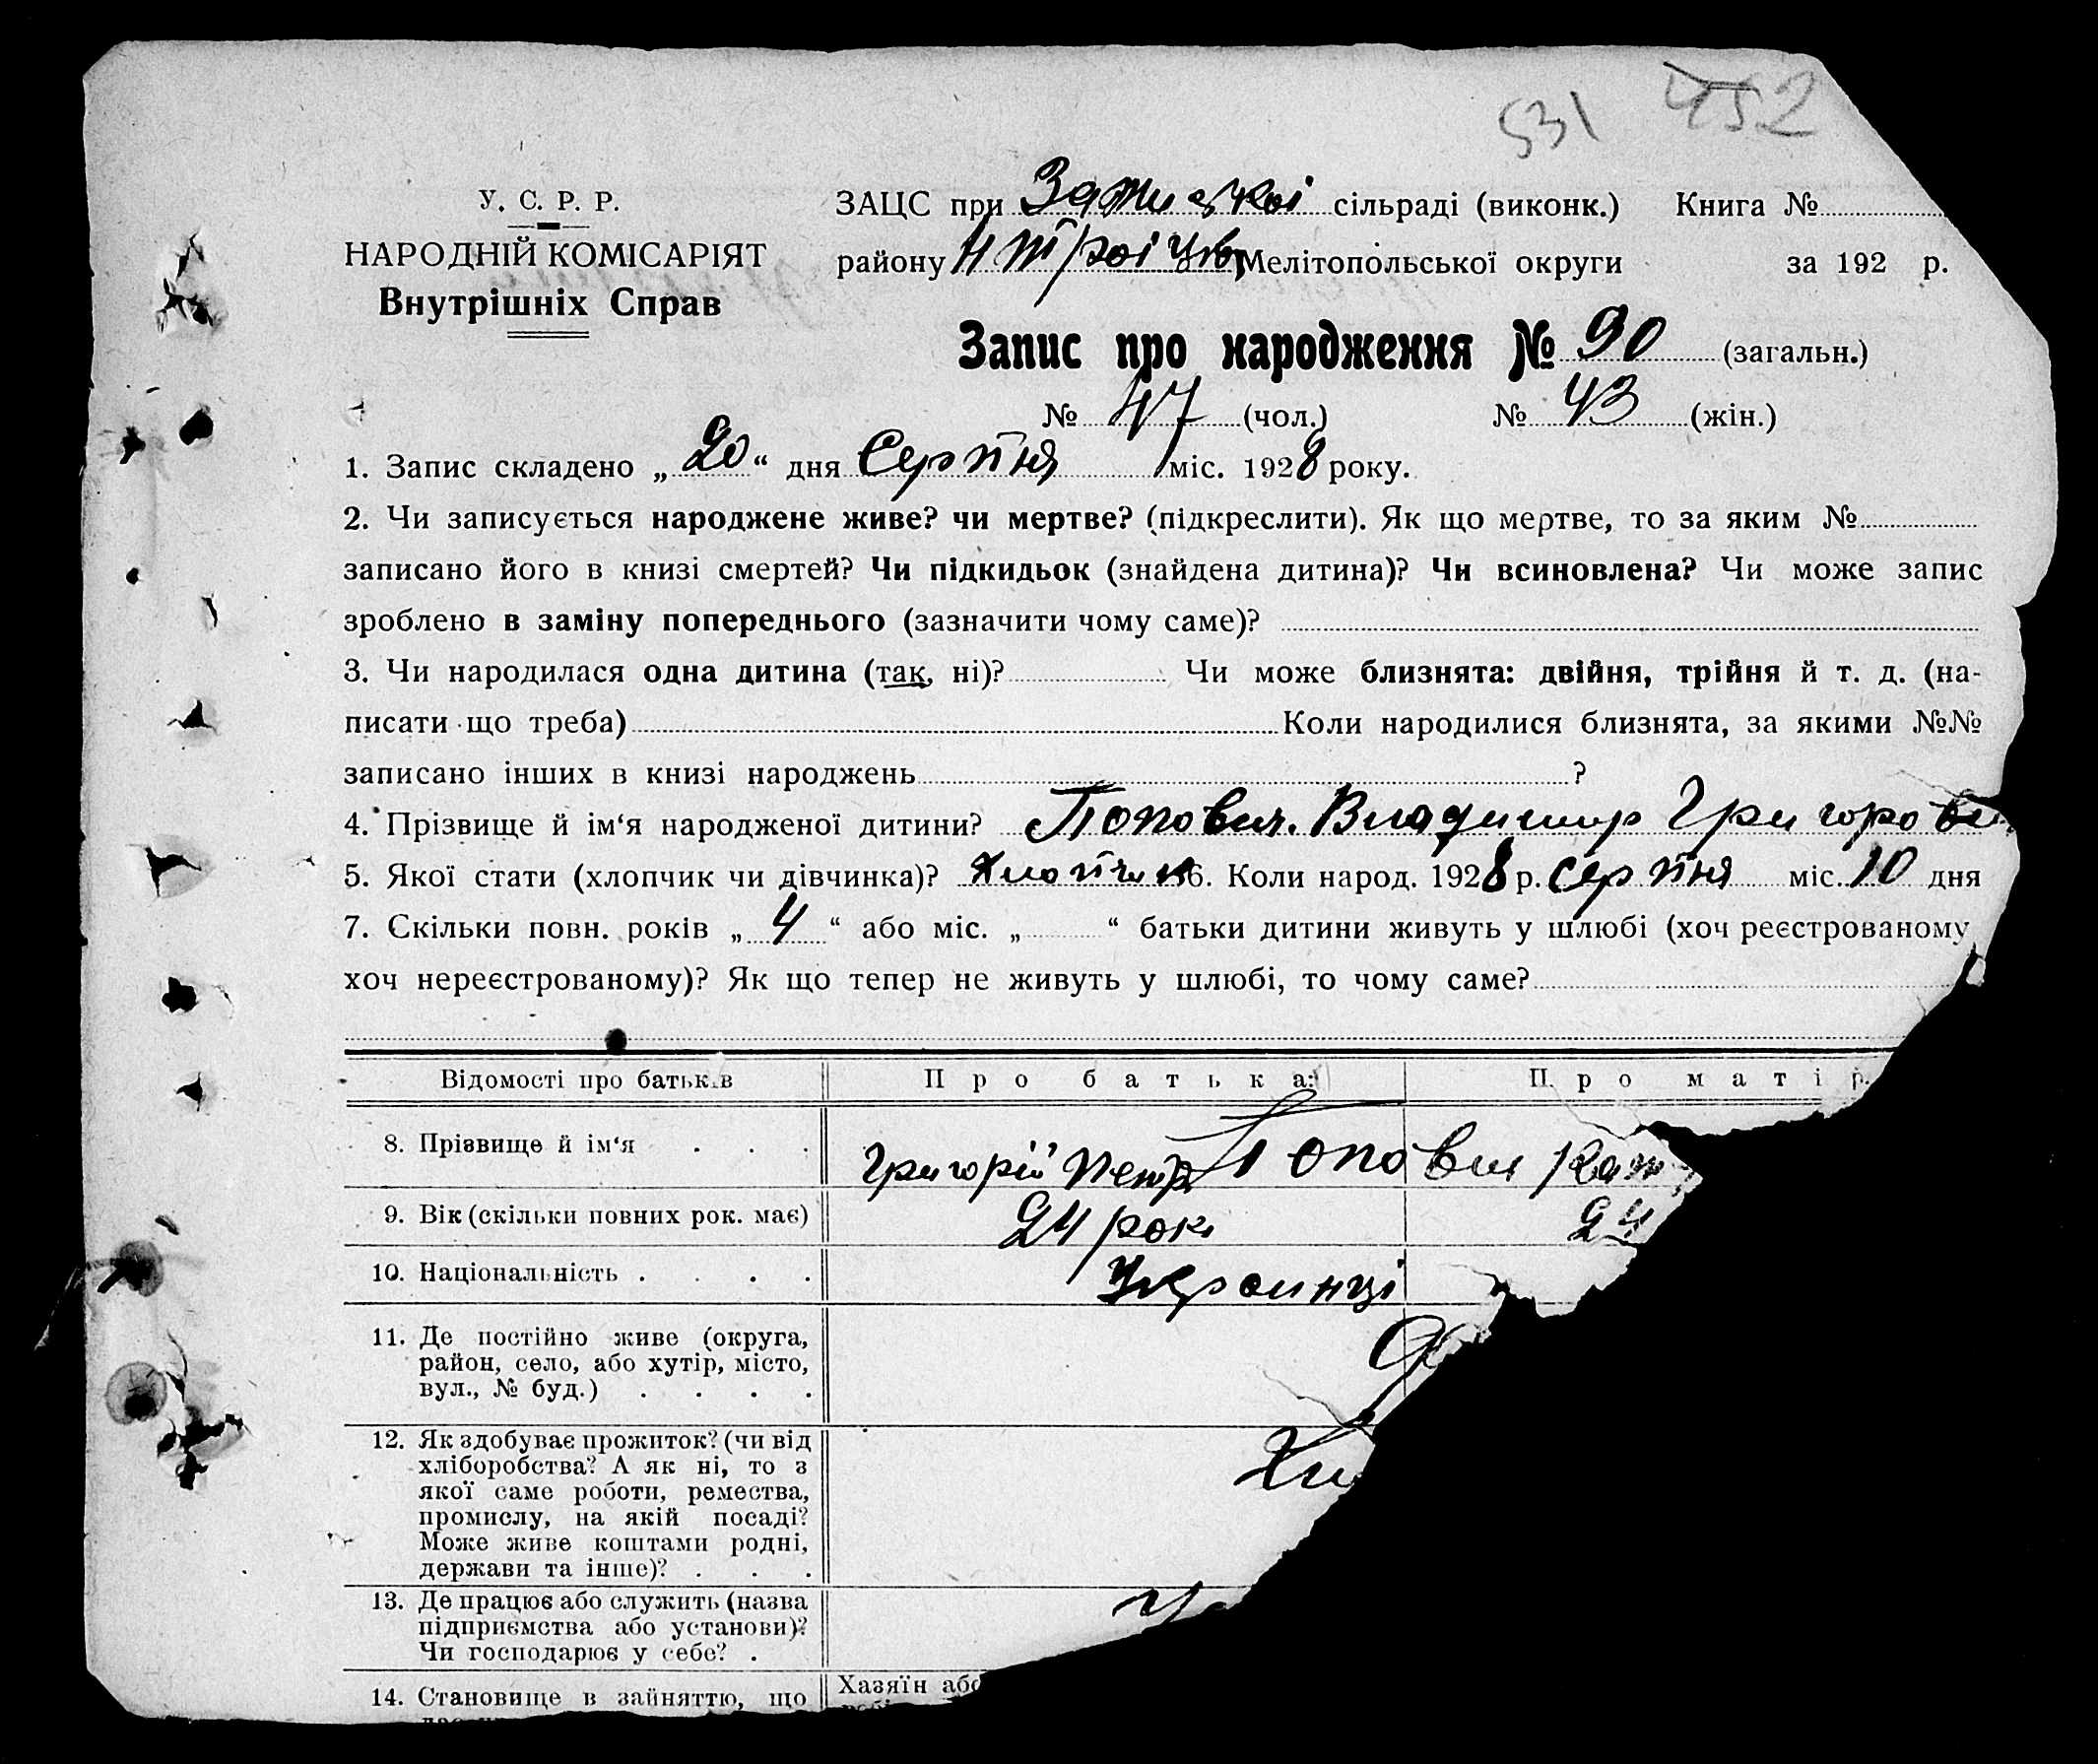 531 452
У. С. Р. Р.
НАРОДНІЙ КОМІСАРІЯТ
Внутрішніх Справ
ЗАЦС при сільраді (виконк.) Книга №
району Н Троїцьк Мелітопольської округи за 192 р.
Запис про народження № 90 (загальн.)
№ 47 (чол.) № 43 (жін.)
1. Запис складено „ 20 “ дня Серпня міс. 1928 року.
2. Чи записується народжене живе? чи мертве? (підкреслити). Як що мертве, то за яким №
записано його в книзі смертей? Чи підкидьок (знайдена дитина)? Чи всиновлена? Чи може запис
зроблено в заміну попереднього (зазначити чому саме)?
3. Чи народилася одна дитина (так, ні)? Чи може близнята: двійня, трійня й т. д. (на-
писати що треба) Коли народилися близнята, за якими №№
записано інших в книзі народжень ?
4. Прізвище й ім‘я народженої дитини? Попович. Владимир Григорови
5. Якої стати (хлопчик чи дівчинка)? Хлопчик 6. Коли народ. 1928 р. Серпня міс. 10 дня
7. Скільки повн. років „ 4 “ або міс. „ “ батьки дитини живуть у шлюбі (хоч реєстрованому
хоч нереєстрованому)? Як що тепер не живуть у шлюбі, то чому саме?
Відомості про батьків Про батька: Про матір.
8. Прізвище й ім‘я Григорій Петр Попович Кат
9. Вік (скільки повних рок. має) 24 рок 24
10. Національність Украинці
11. Де постійно живе (округа,
район, село, або хутір, місто,
вул., № буд.)
12. Як здобуває прожиток? (чи від
хліборобства? А як ні, то з
якої саме роботи, ремества,
промислу, на якій посаді?
Може живе коштами родні,
держави та інше)?
13. Де працює або служить (назва
підприємства або установи)?
Чи господарює у себе?
14. Становище в зайняттю, що Хазяїн або